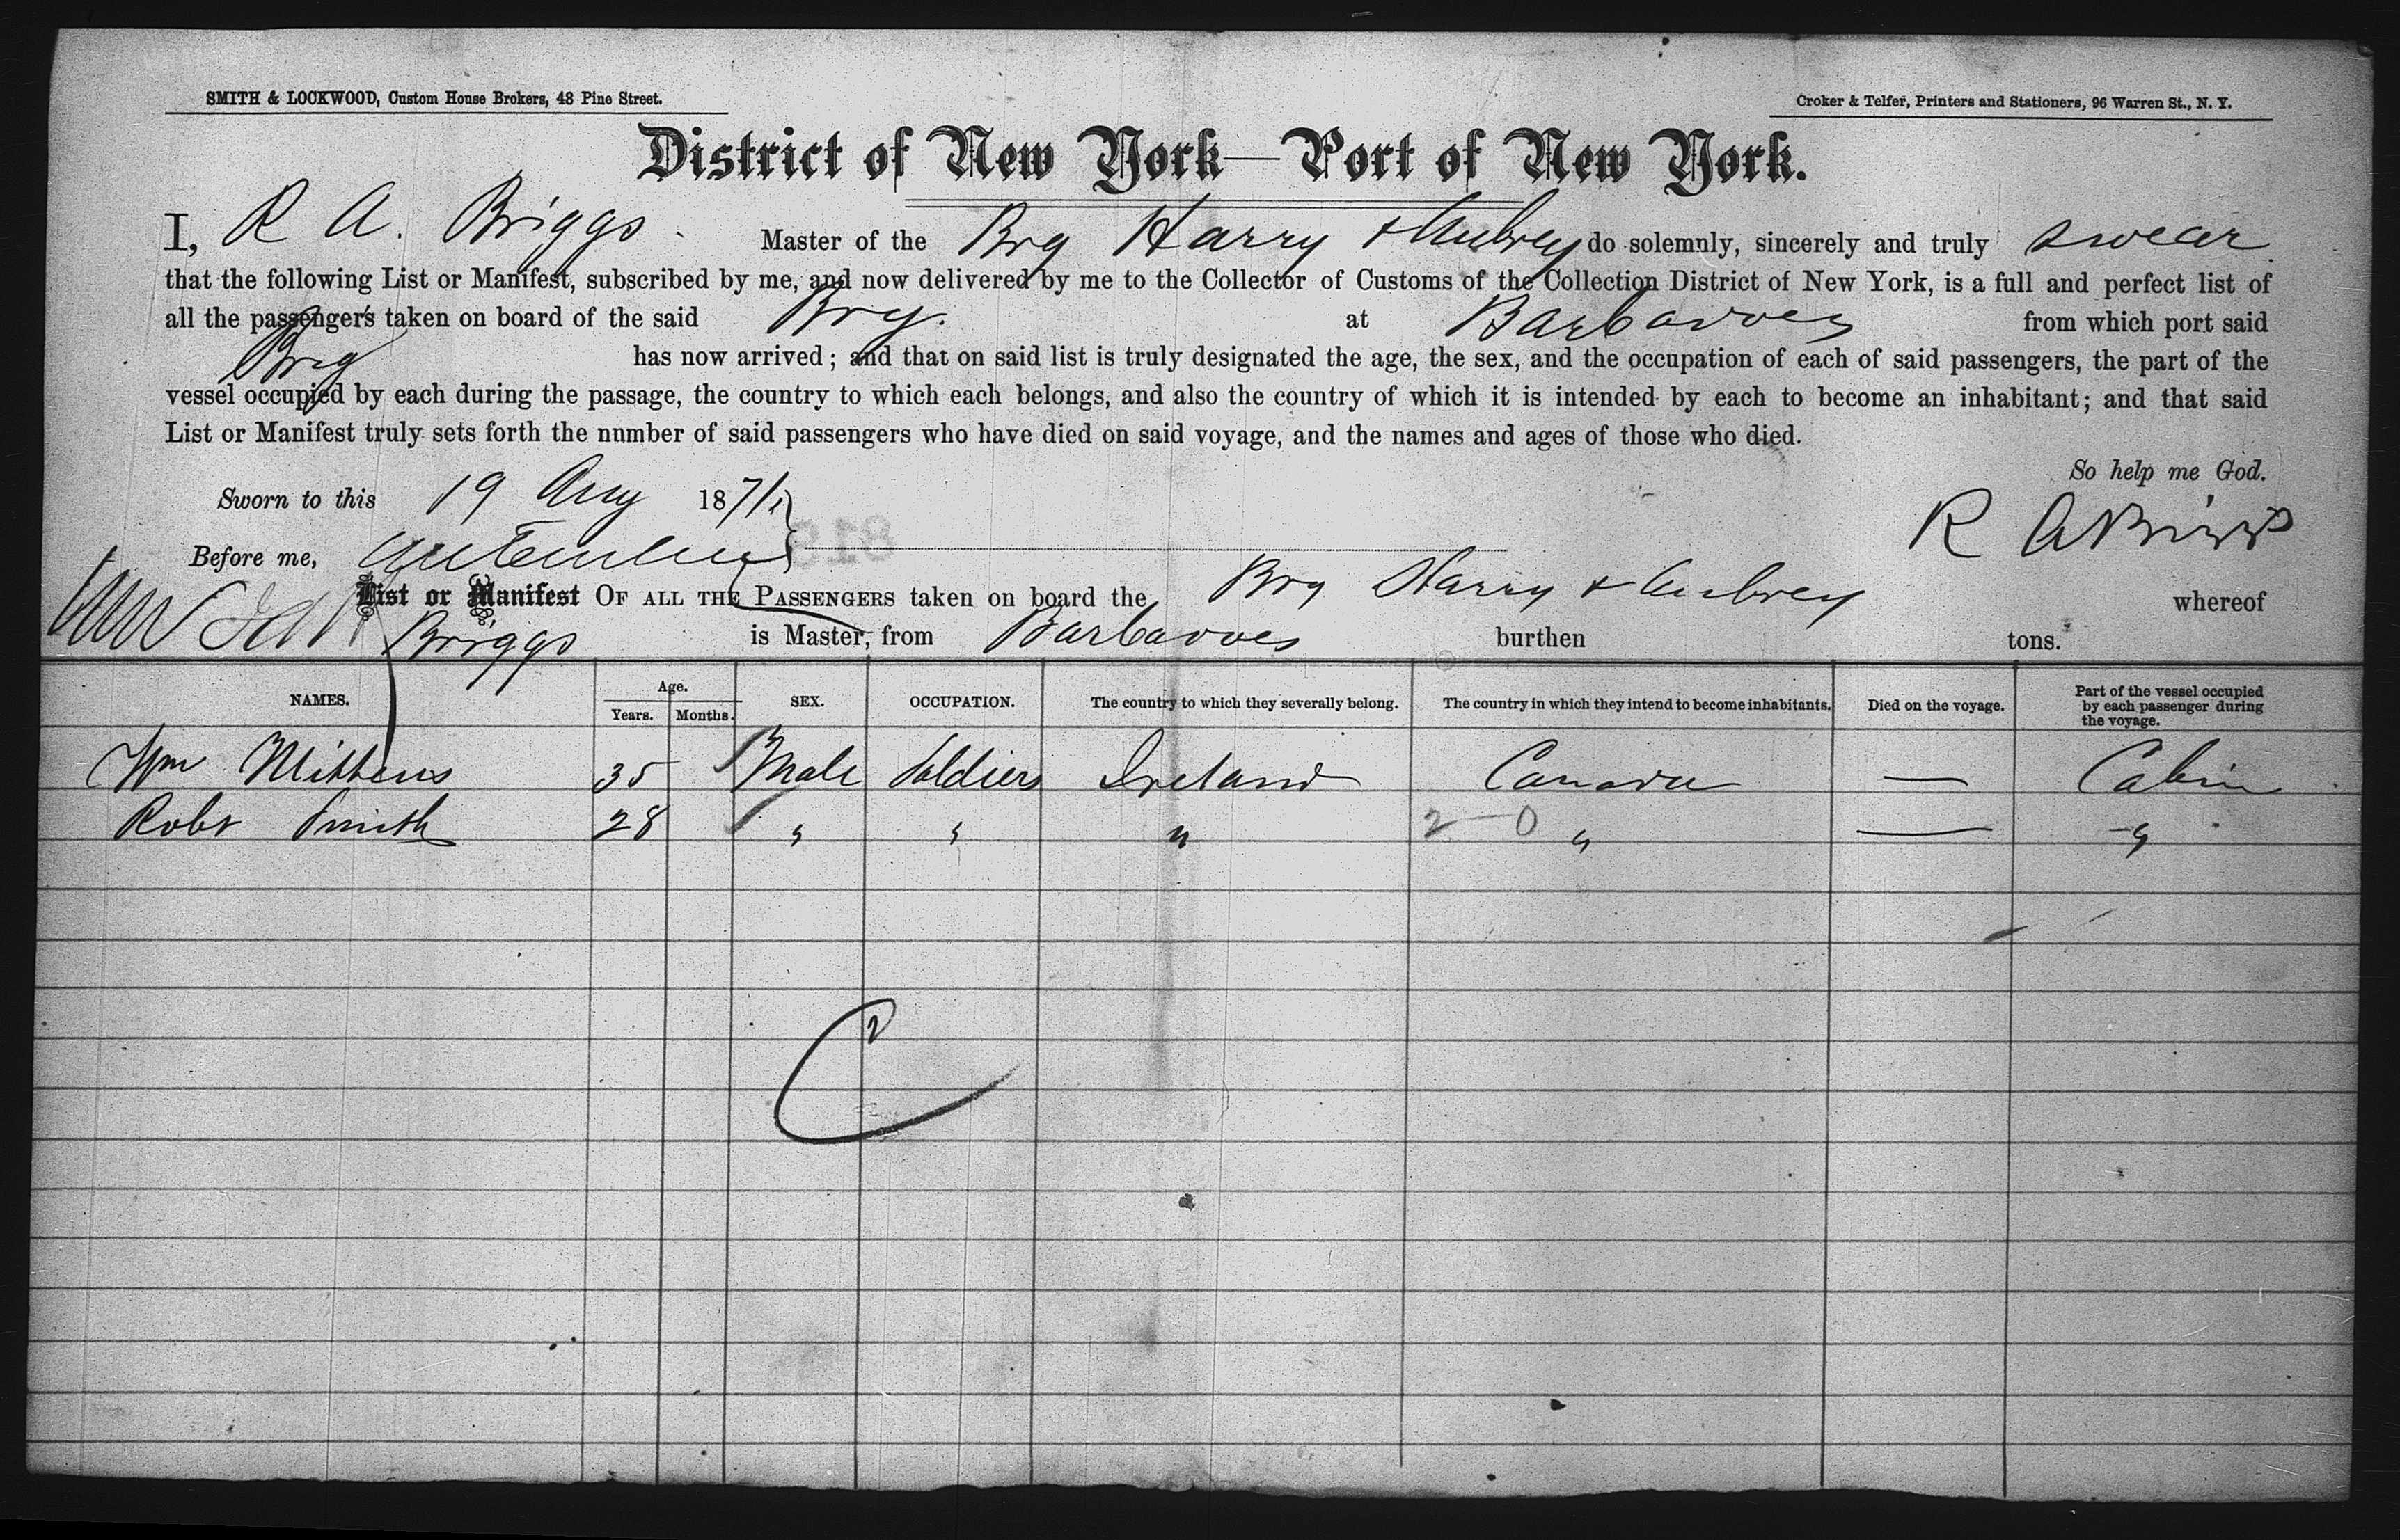 SMITH & LOCKWOOD, Custom House Brokers, 48 Pine Street.
Croker & Telfer, Printers and Stationers, 96 Warren St., N. Y.
District of New York—Port of New York.
I, R A. Briggs. Master of the Brg Harry & Aubrey do solemnly, sincerely and truly swear
that the following List or Manifest, subscribed by me, and now delivered by me to the Collector of Customs of the Collection District of New York, is a full and perfect list of
all the passengers taken on board of the said Brg. at Barbadoes from which port said
Brig has now arrived; and that on said list is truly designated the age, the sex, and the occupation of each of said passengers, the part of the
vessel occupied by each during the passage, the country to which each belongs, and also the country of which it is intended by each to become an inhabitant; and that said
List or Manifest truly sets forth the number of said passengers who have died on said voyage, and the names and ages of those who died.
So help me God.
Sworn to this 19 Aug 187
R A Briggs
Before me,
List or Manifest OF ALL THE PASSENGERS taken on board the Brg Harry & Aubrey whereof
Briggs is Master, from Barbadoes burthen tons.
NAMES. Age. Years. Months. SEX. OCCUPATION. The country to which they severally belong. The country in which they intend to become inhabitants. Died on the voyage. Part of the vessel occupied by each passenger during the voyage.
Wm Mittens 35 Male Soldiers Ireland Canada — Cabin
Robt Smith 28 " " " 2-0 " — "
2